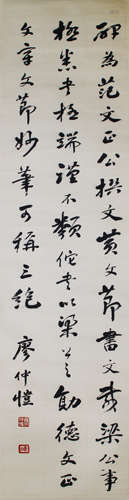 碑為范文正公撰文黃文節書文考梁公事
極悉書極端謹不類佗書以梁公之勛德文正
文章文節妙筆可稱三絶
廖仲愷